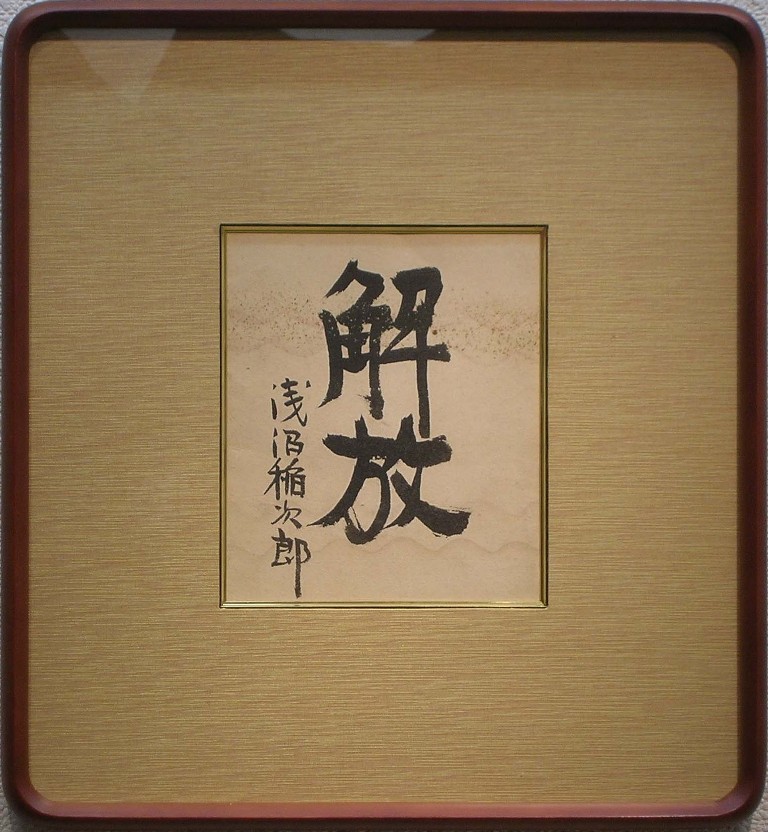 解放
浅沼稲次郎